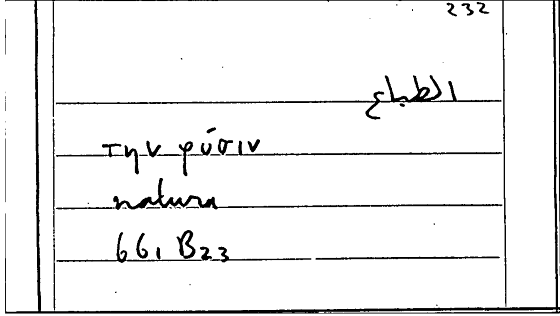 232
الطباع
την φύσιν
natura
661 B23